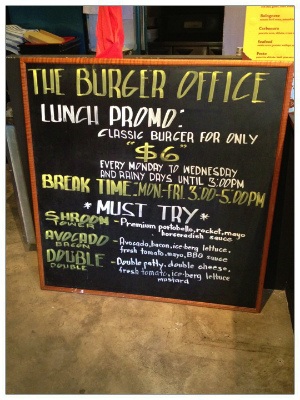 THE BURGER OFFICE
LUNCH PROMO:
CLASSIC BURGER FOR ONLY
"$6"
EVERY MONDAY TO WEDNESDAY
AND RAINY DAYS UNTIL 3:00PM
BREAK TIME: MON-FRI 3:00-5:00PM
* MUST TRY *
SHROOM TOWER - Premium portobello, rocket, mayo
horseradish sauce
AVOCADO BACON - Avocado, bacon, ice-berg lettuce,
fresh tomato, mayo, BBQ sauce
DOUBLE DOUBLE - Double patty, double cheese,
fresh tomato, ice-berg lettuce
mustard
Bolognese
Carbonara
Seafood
Pesto